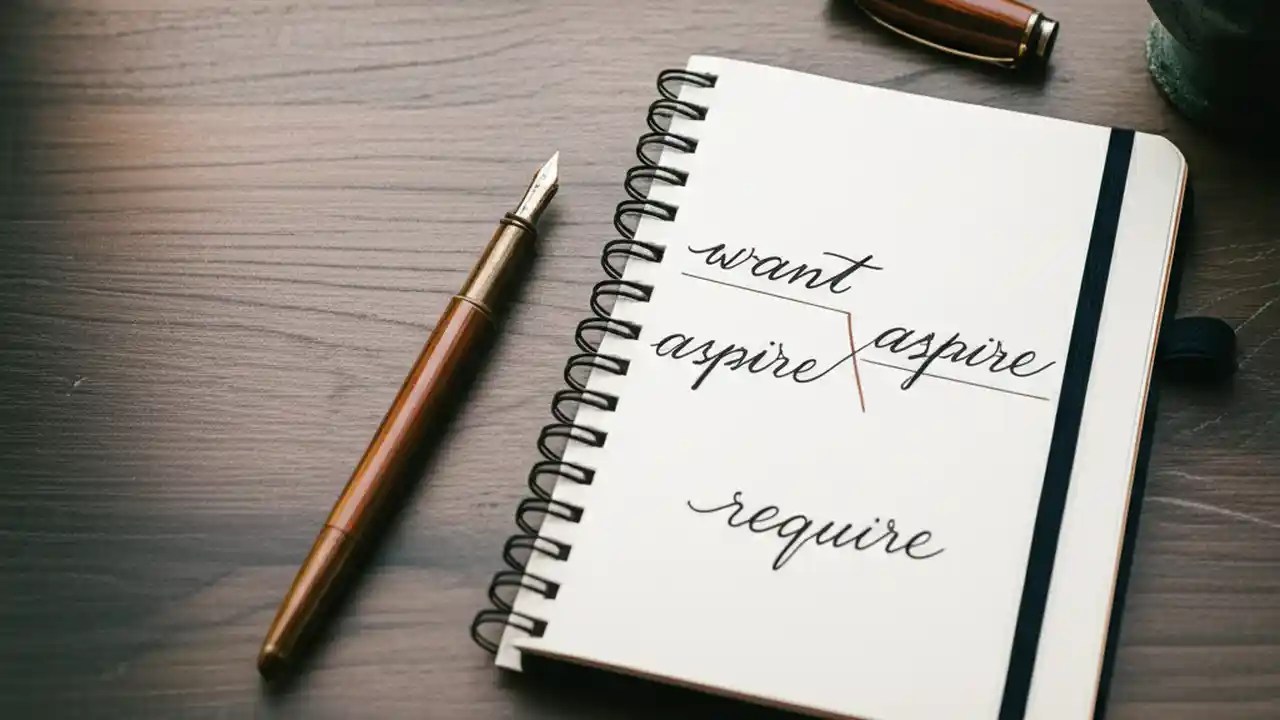 want
aspire aspire
require